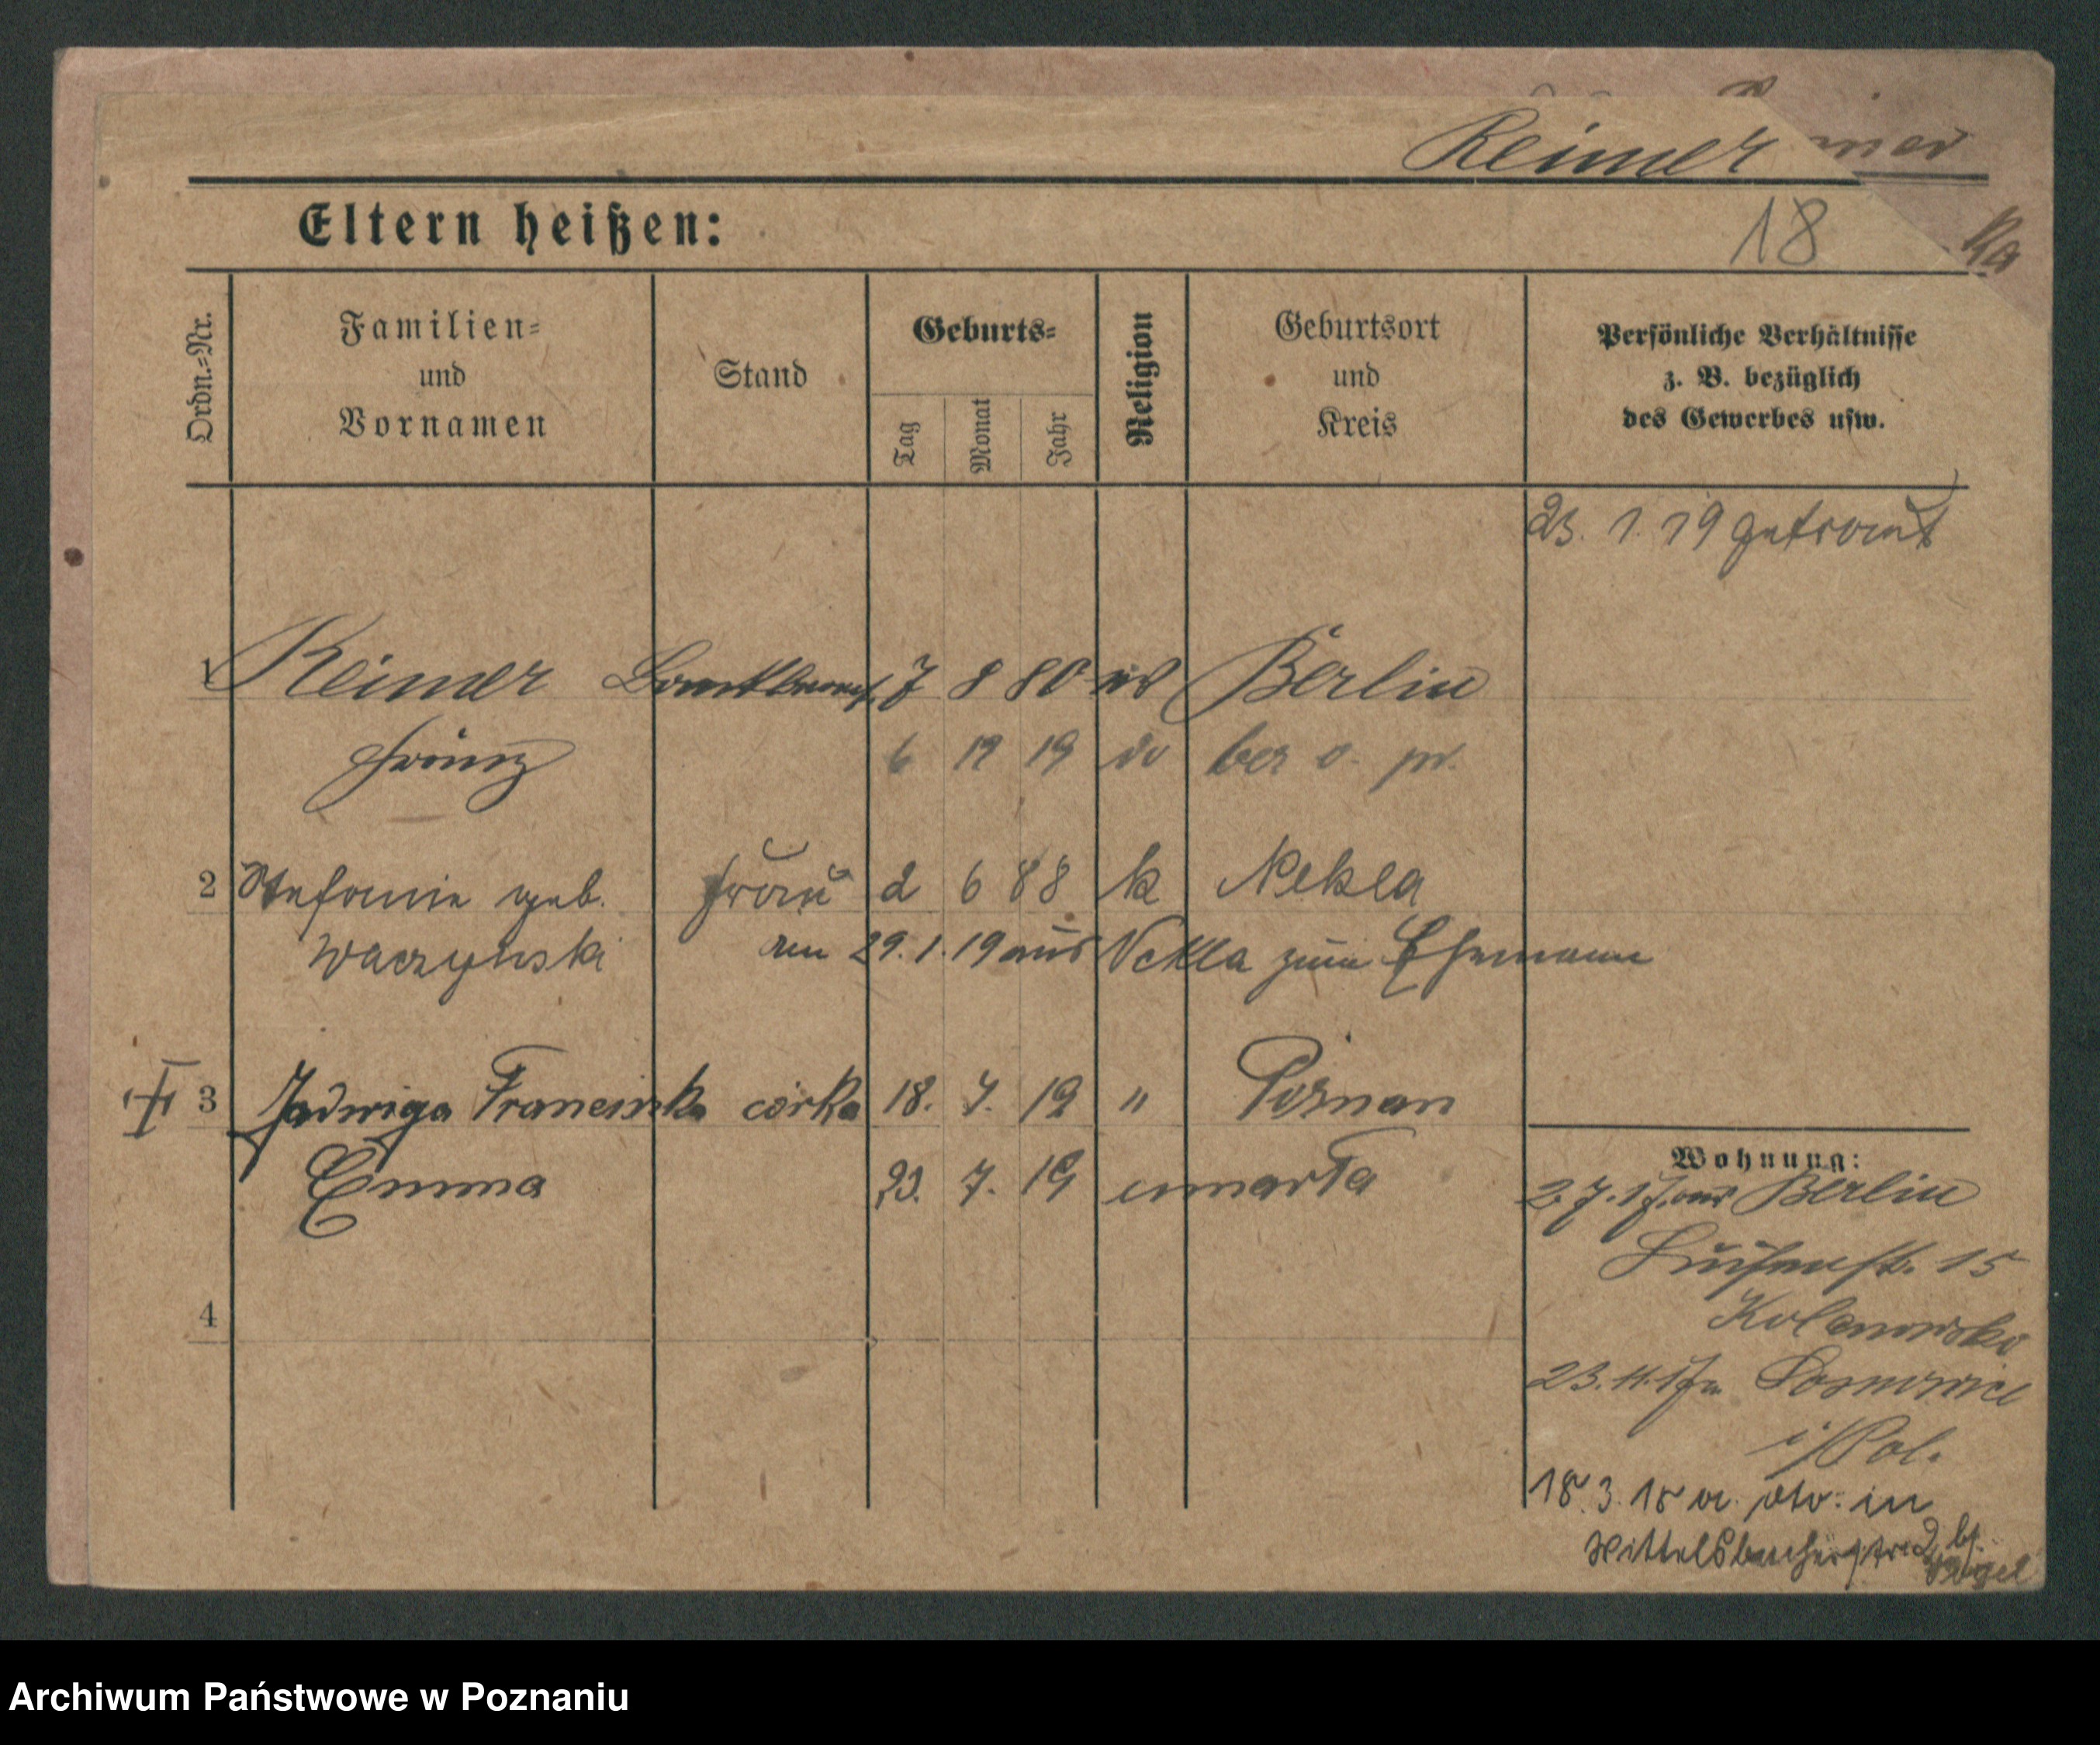 mer
Reimer
Eltern heißen:
18
Ka
Ordn.-Nr.
Familien-
und
Vornamen
Stand
Geburts-
Tag
Monat
Jahr
Religion
Geburtsort
und
Kreis
Persönliche Verhältnisse
z. B. bezüglich
des Gewerbes usw.
23. 1. 19 getraut
1 Reimer 7 8 80 Berlin
Franz 6 12 19
2 Stefanie geb. Frau 2 6 88 k Nekla
Waczynski am 29.1.19 aus Nekla zum Ehemann
3 Jadwiga Franciszka córka 18. 7. 19 " Poznan
Emma 23. 7. 19 umarła
4
Wohnung:
2.7.17 aus Berlin
Luisenstr. 15
Kolanowska
23.11.17 n. Sosnowice
i/Pol.
18.3.18 in
Wittelsbacherstr. 2 bei
Vogel
Archiwum Państwowe w Poznaniu